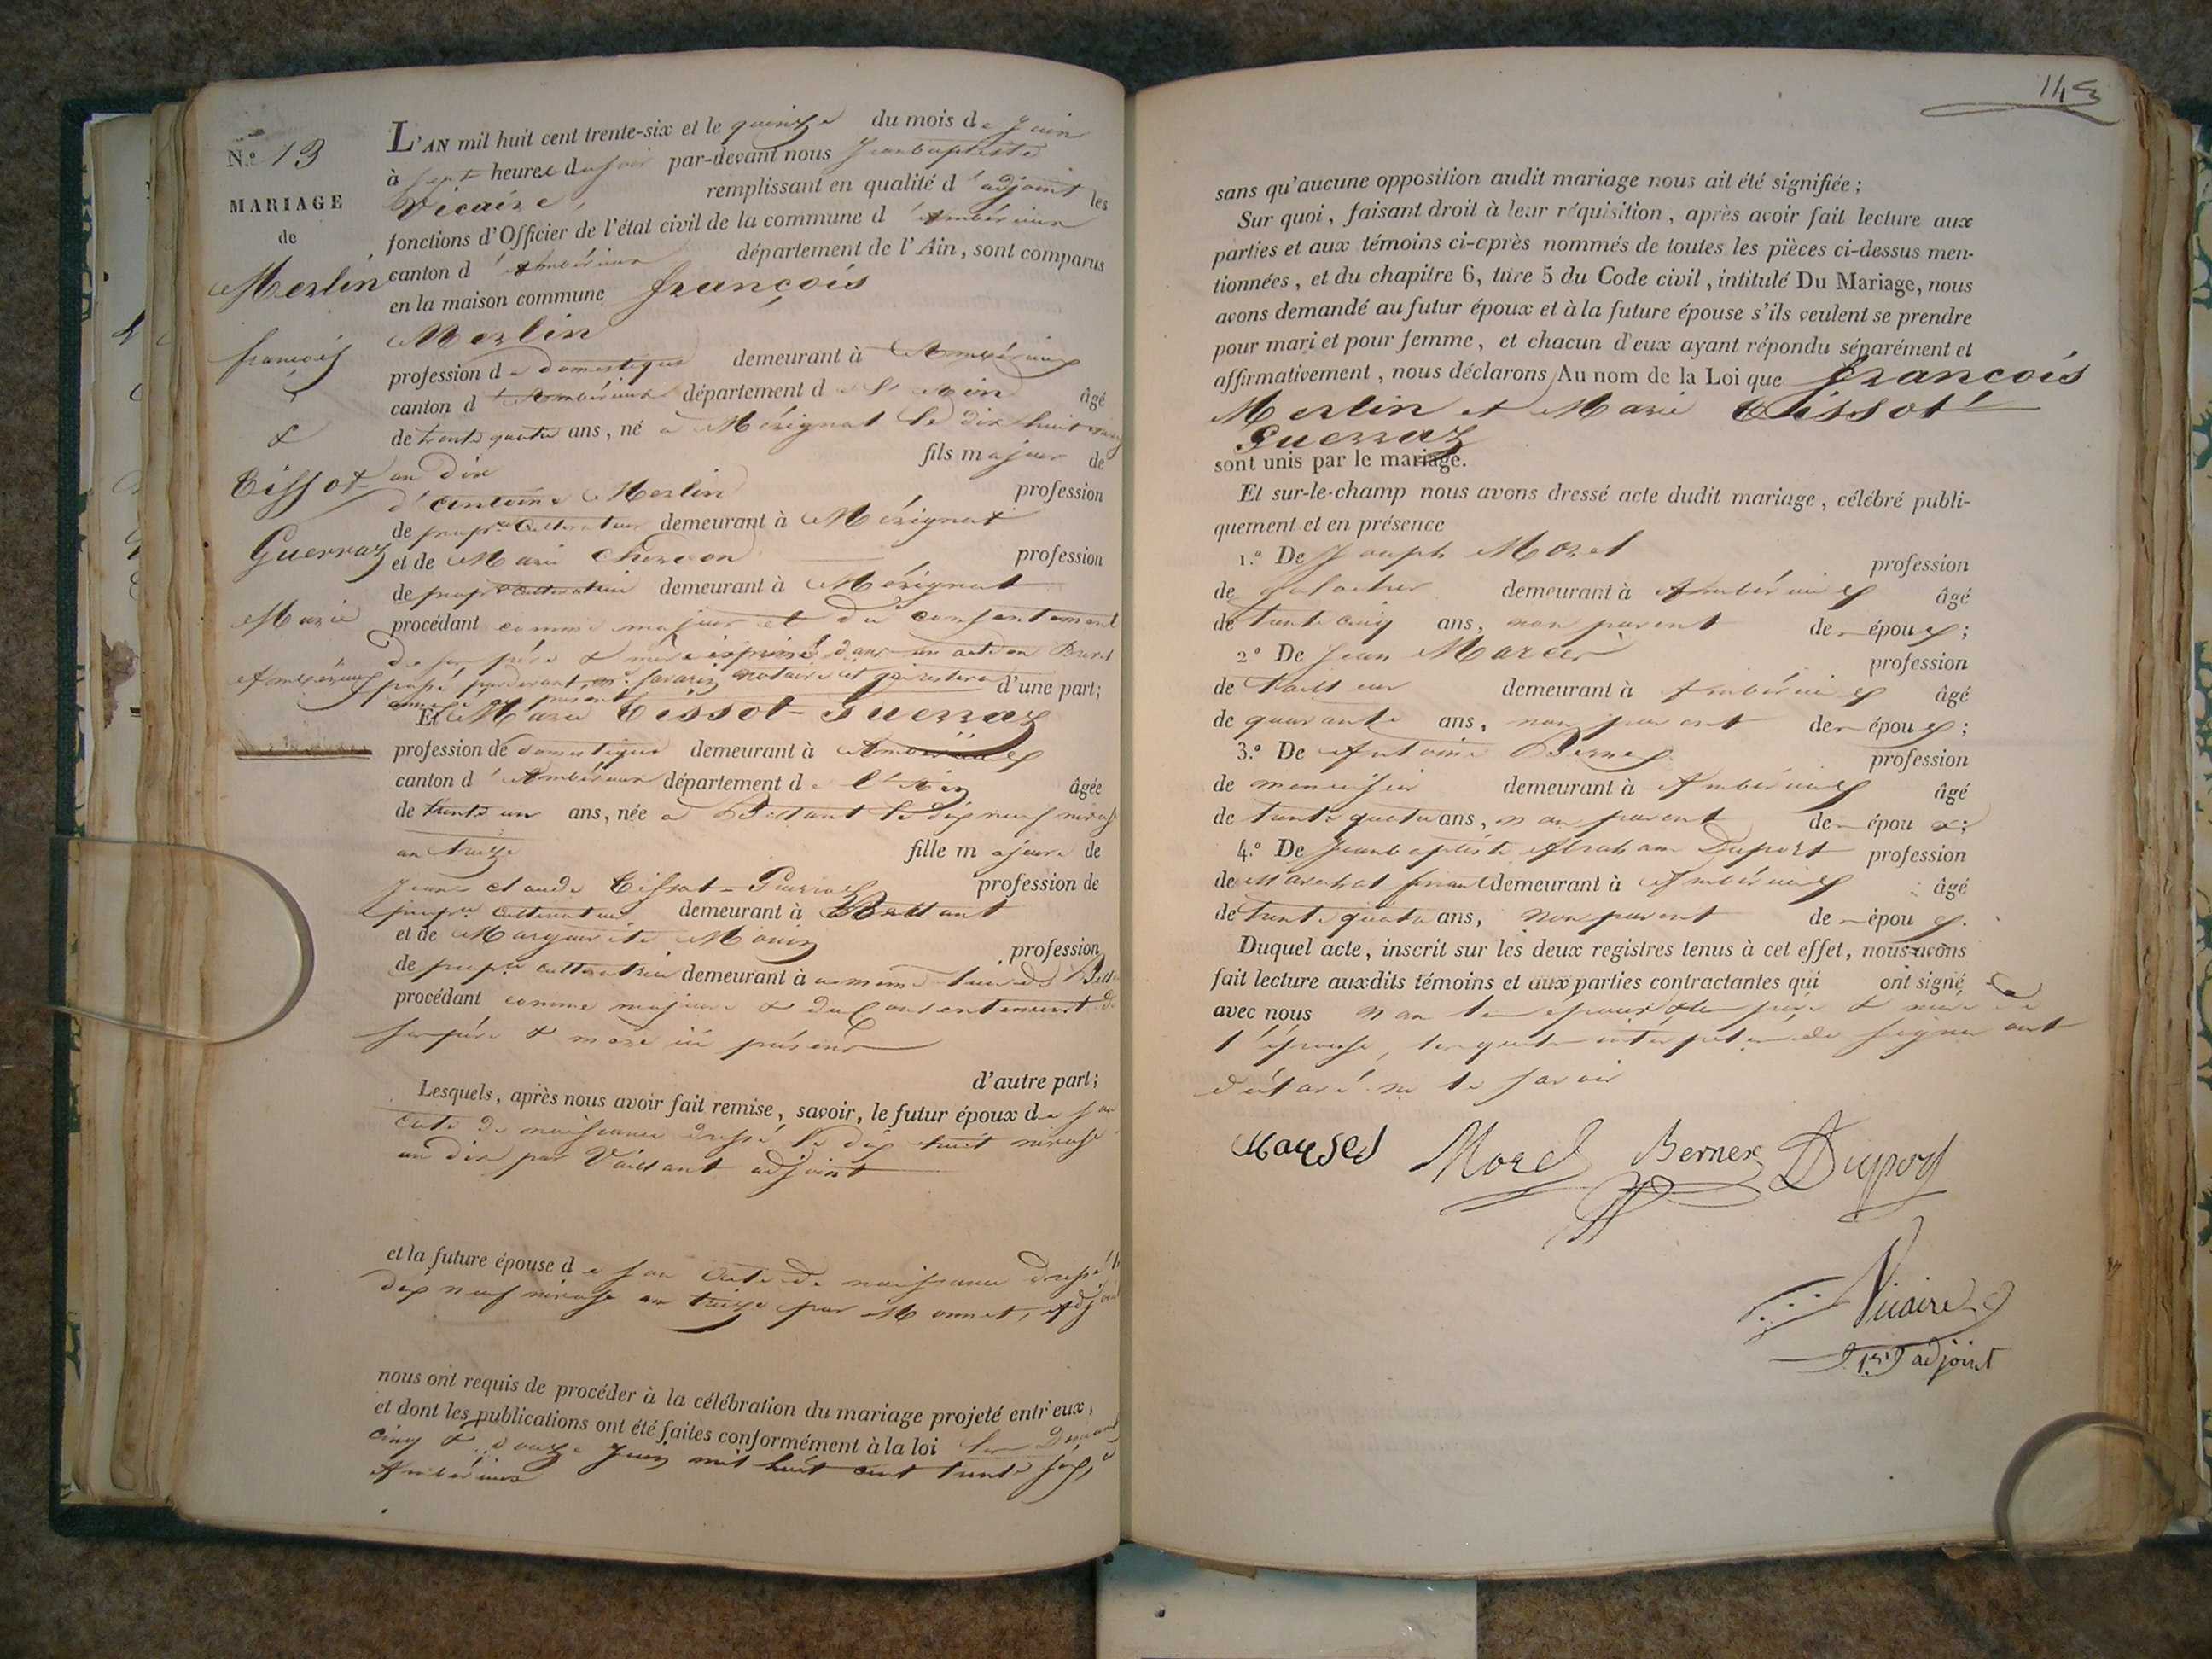 N.o 13
MARIAGE
de
Merlin
françois
&
Tissot
Guerraz
Marie
Ambérieux
L'AN mil huit cent trente-six et le quinze du mois de Juin
à sept heures du soir par-devant nous Jean baptiste
Vicaire, remplissant en qualité d'adjoint les
fonctions d'Officier de l'état civil de la commune d'Ambérieux
canton d'Ambérieux département de l'Ain, sont comparus
en la maison commune françois
Merlin
profession de domestique demeurant à Ambérieux
canton d'Ambérieux département de l'Ain âgé
de trente quatre ans, né à Mérignat le dix huit nivose
an dix fils majeur de
d'Antoine Merlin profession
de propre Cultivateur demeurant à Mérignat
et de Marie profession
de propre Cultivatrice demeurant à Mérignat
procédant comme majeur et du consentement
de ses père & mère exprimé dans un acte en Buret
passé pardevant me Savarin notaire et qui restera d'une part;
annexé au présent
Et Marie Tissot-Guerraz
profession de domestique demeurant à Ambérieux
canton d'Ambérieux département de l'Ain âgée
de trente un ans, née à Bettant le dix neuf nivose
an treize fille majeure de
Jean Claude Tissot-Guerraz profession de
propre Cultivateur demeurant à Bettant
et de Marguerite Monin profession
de propre cultivatrice demeurant à au même lieu de Bett
procédant comme majeure & du Consentement de
ses père & mère ici présens
d'autre part;
Lesquels, après nous avoir fait remise, savoir, le futur époux de son
acte de naissance dressé le dix huit nivose
an dix par Vaillant adjoint
et la future épouse de son acte de naissance dressé le
dix neuf nivose an treize par Monnet, Adjoint
nous ont requis de procéder à la célébration du mariage projeté entr'eux,
et dont les publications ont été faites conformément à la loi les Dimanches
cinq & douze Juin mil huit cent trente six, à
Ambérieux
143
sans qu'aucune opposition audit mariage nous ait été signifiée;
Sur quoi, faisant droit à leur réquisition, après avoir fait lecture aux
parties et aux témoins ci-après nommés de toutes les pièces ci-dessus men-
tionnées, et du chapitre 6, titre 5 du Code civil, intitulé Du Mariage, nous
avons demandé au futur époux et à la future épouse s'ils veulent se prendre
pour mari et pour femme, et chacun d'eux ayant répondu séparément et
affirmativement, nous déclarons Au nom de la Loi que françois
Merlin et Marie Tissot
Guerraz
sont unis par le mariage.
Et sur-le-champ nous avons dressé acte dudit mariage, célébré publi-
quement et en présence
1.o De Joseph Morel profession
de galocher demeurant à Ambérieux âgé
de trente cinq ans, non parent des époux;
2o De Jean profession
de Tailleur demeurant à Ambérieux âgé
de quarante ans, non parent des époux;
3.o De Antoine Bernex profession
de menuisier demeurant à Ambérieux âgé
de trente quatre ans, non parent des époux;
4.o De Jean baptiste Abraham Duport profession
de Maréchal ferrant demeurant à Ambérieux âgé
de trente quatre ans, non parent des époux.
Duquel acte, inscrit sur les deux registres tenus à cet effet, nous avons
fait lecture auxdits témoins et aux parties contractantes qui ont signé
avec nous non les époux & les père & mère de
l'épouse, lesquels interpelés de signer ont
déclaré ne le savoir
Morel Bernex Duport
Vicaire
1er adjoint